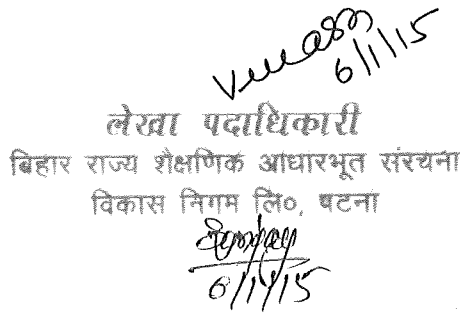 6/1/15
लेखा पदाधिकारी
बिहार राज्य शैक्षणिक आधारभूत संरचना
विकास निगम लि०, पटना
6/1/15